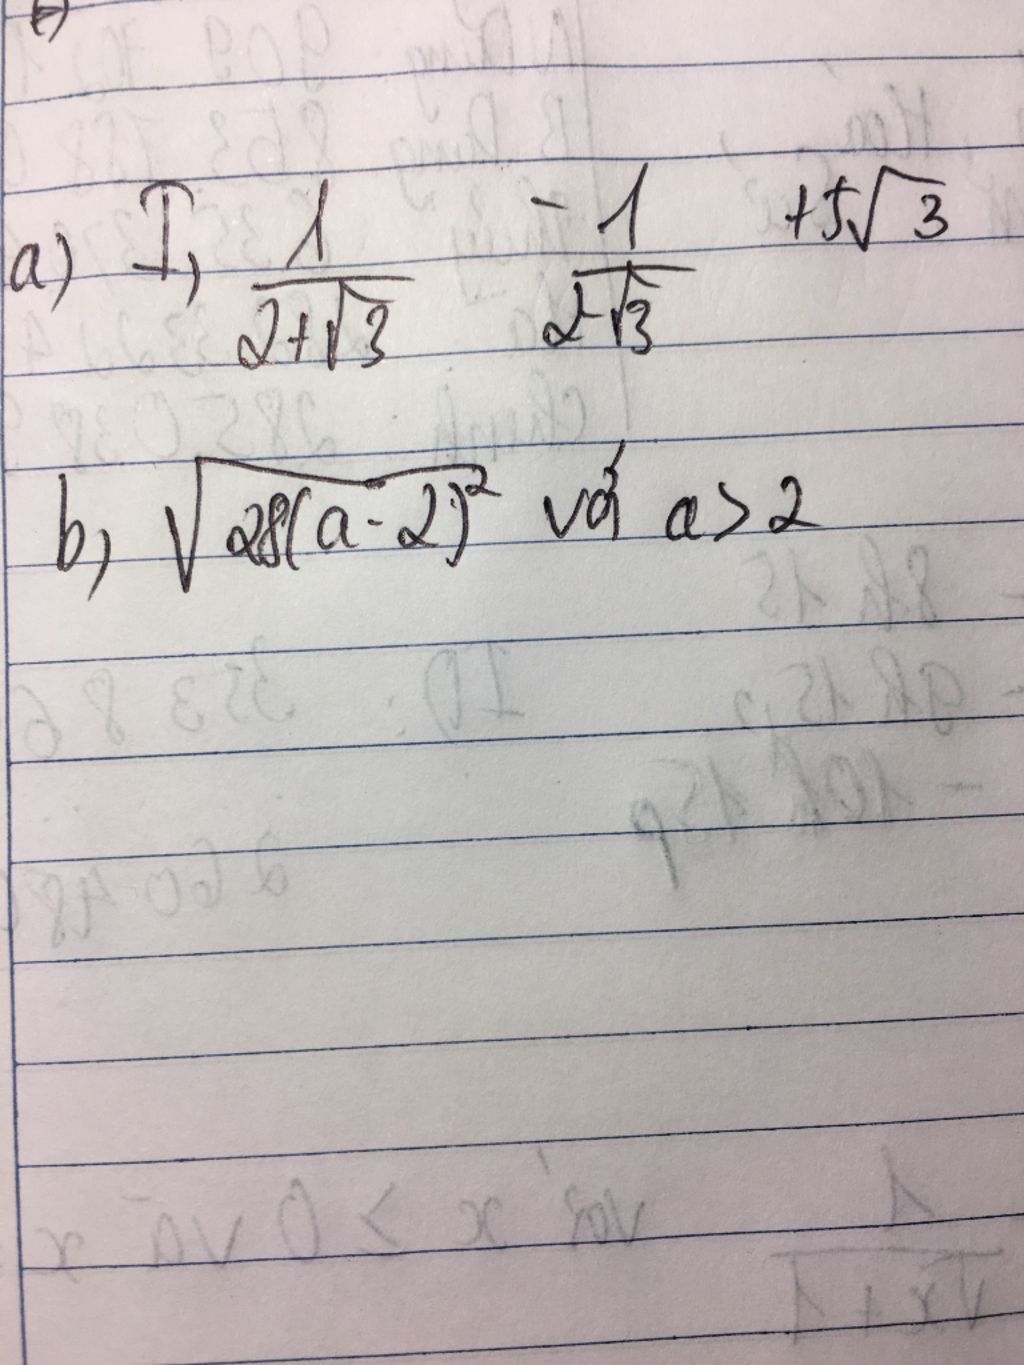 a) I, 1/(2+√3) - 1/(2-√3) +5√3
b, √(28(a-2)²) với a > 2